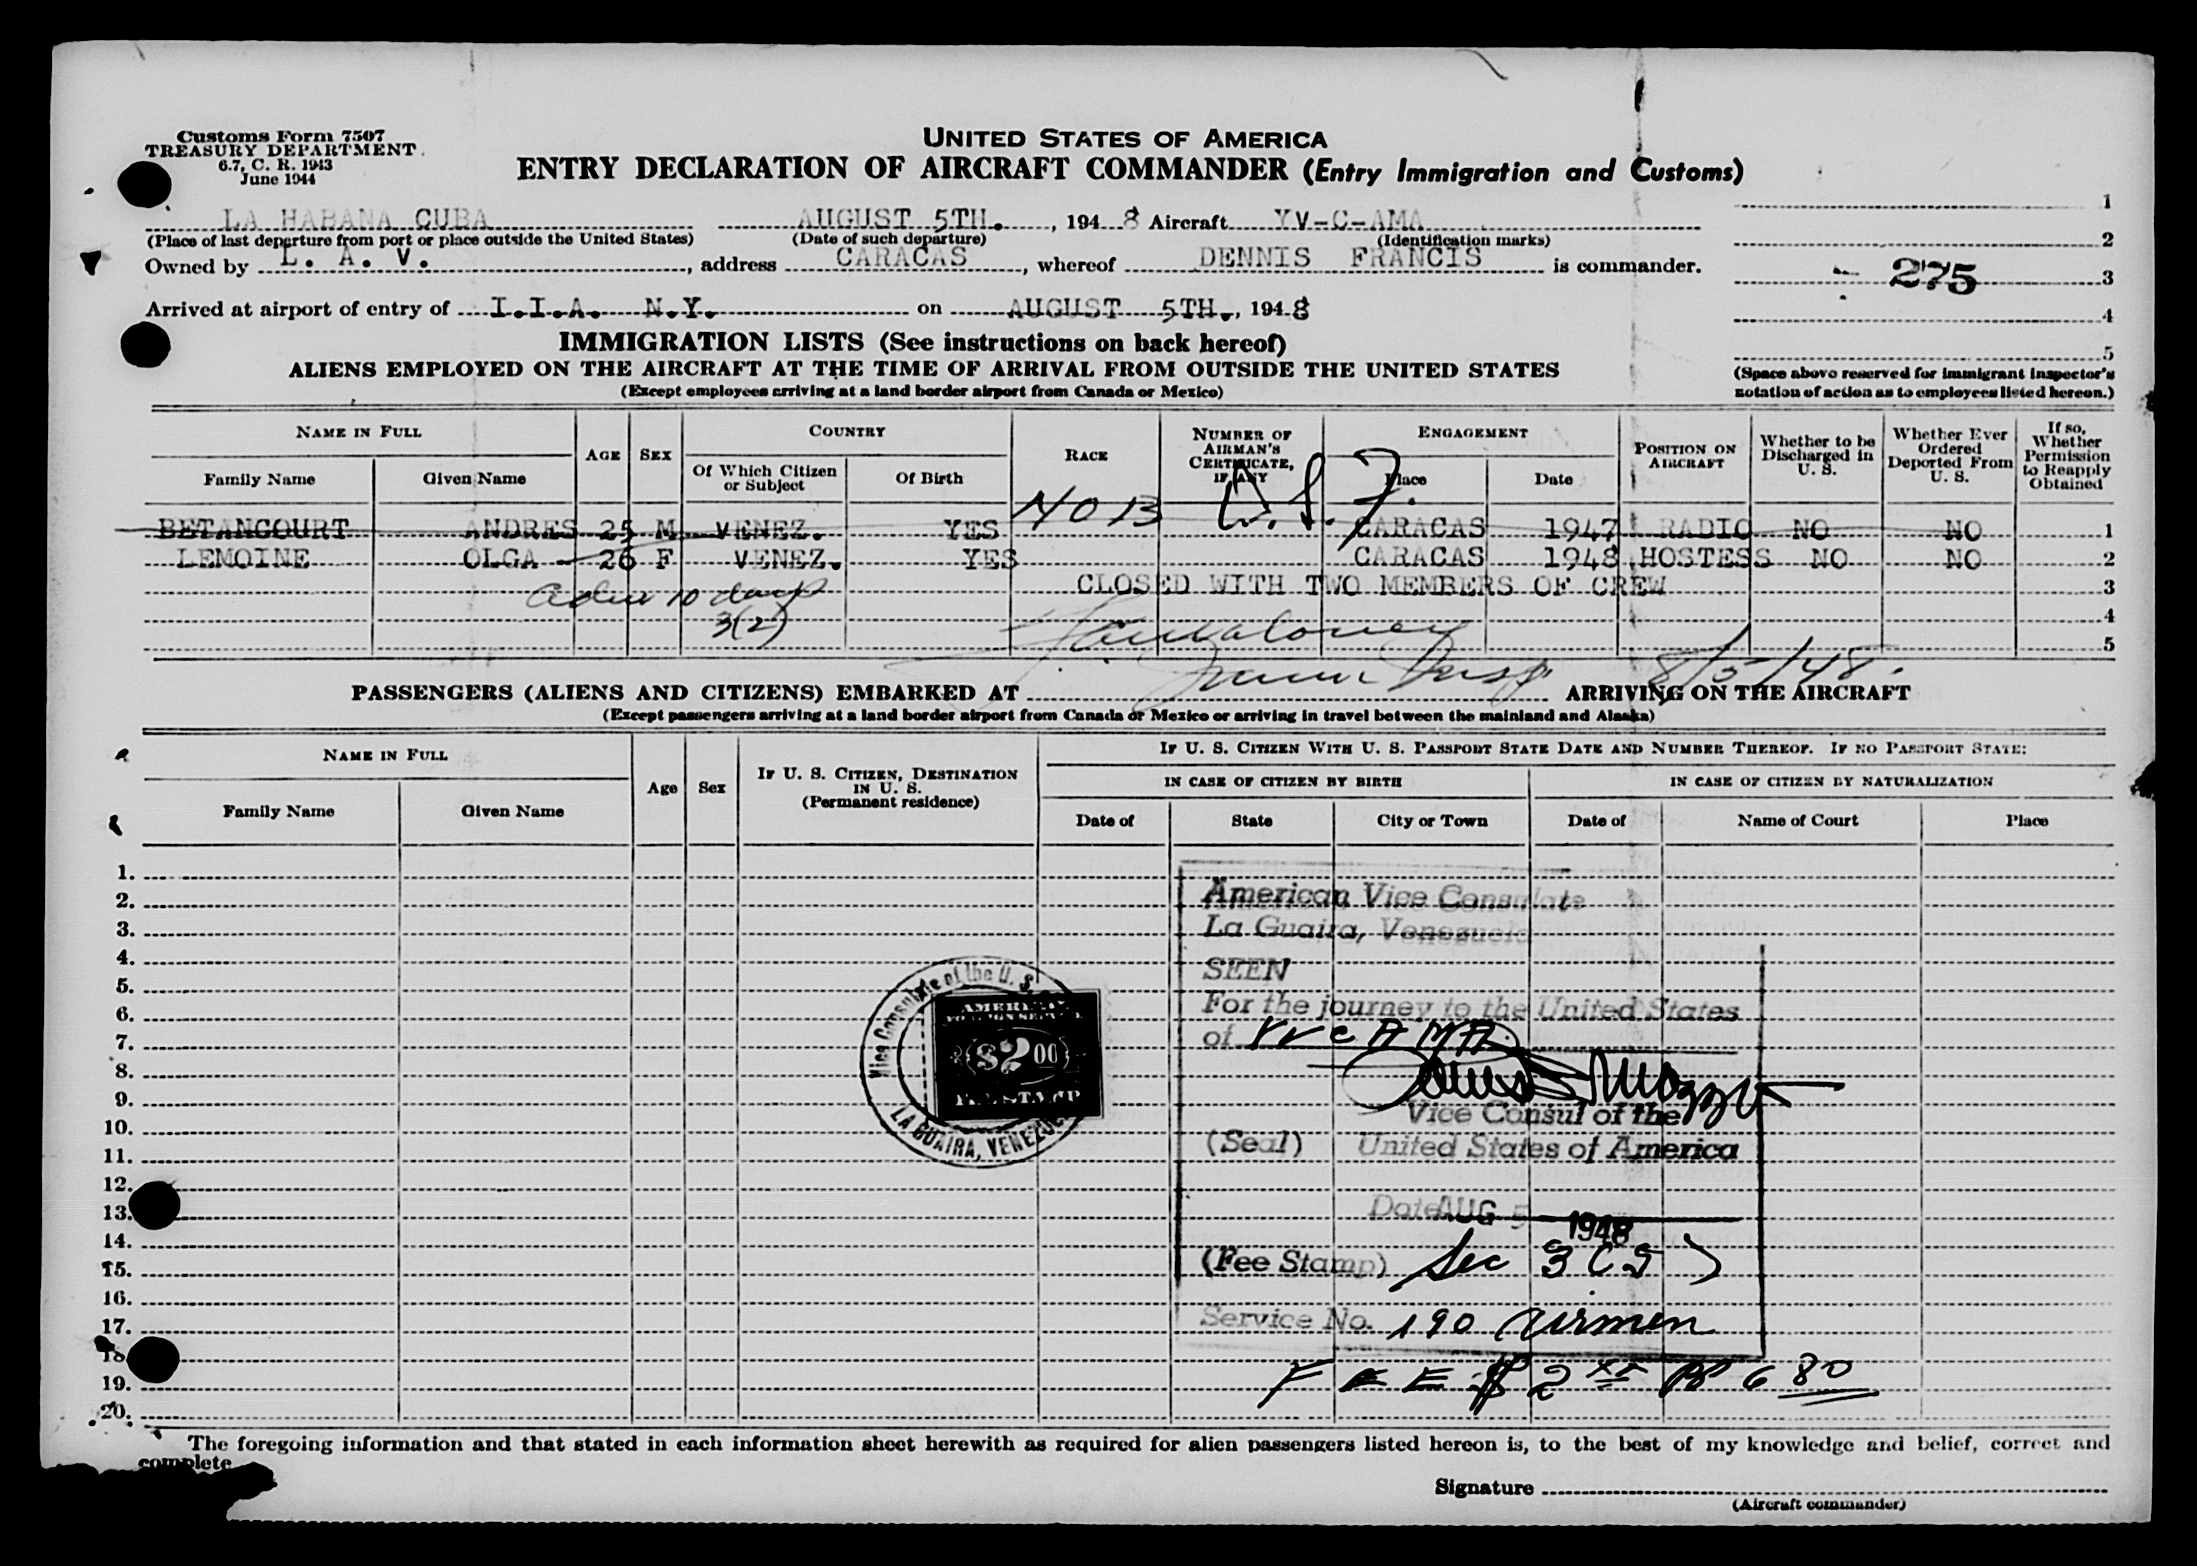 Customs Form 7507
TREASURY DEPARTMENT
6.7, C. R. 1943
June 1944
UNITED STATES OF AMERICA
ENTRY DECLARATION OF AIRCRAFT COMMANDER (Entry Immigration and Customs)
LA HABANA CUBA AUGUST 5TH. , 194 8 Aircraft YV-C-AMA
(Place of last departure from port or place outside the United States) (Date of such departure) (Identification marks)
Owned by L. A. V. , address CARACAS , whereof DENNIS FRANCIS is commander.
Arrived at airport of entry of I.I.A. N.Y. on AUGUST 5TH. , 194 8
1
2
275 3
4
5
(Space above reserved for immigrant inspector's
notation of action as to employees listed hereon.)
IMMIGRATION LISTS (See instructions on back hereof)
ALIENS EMPLOYED ON THE AIRCRAFT AT THE TIME OF ARRIVAL FROM OUTSIDE THE UNITED STATES
(Except employees arriving at a land border airport from Canada or Mexico)
NAME IN FULL
Family Name Given Name
AGE SEX
COUNTRY
Of Which Citizen or Subject Of Birth
RACE
NUMBER OF AIRMAN'S CERTIFICATE, IF ANY
ENGAGEMENT
Place Date
POSITION ON AIRCRAFT
Whether to be Discharged in U. S.
Whether Ever Ordered Deported From U. S.
If so, Whether Permission to Reapply Obtained
NOB D.S.7.
BETANCOURT ANDRES 25 M VENEZ. YES CARACAS 1947 RADIO NO NO 1
LEMOINE OLGA 26 F VENEZ. YES CARACAS 1948 HOSTESS NO NO 2
10 days CLOSED WITH TWO MEMBERS OF CREW 3
3(2) 4
5
8/5/48.
PASSENGERS (ALIENS AND CITIZENS) EMBARKED AT ARRIVING ON THE AIRCRAFT
(Except passengers arriving at a land border airport from Canada or Mexico or arriving in travel between the mainland and Alaska)
NAME IN FULL
Family Name Given Name
Age Sex
IF U. S. CITIZEN, DESTINATION IN U. S. (Permanent residence)
IF U. S. CITIZEN WITH U. S. PASSPORT STATE DATE AND NUMBER THEREOF. IF NO PASSPORT STATE:
IN CASE OF CITIZEN BY BIRTH IN CASE OF CITIZEN BY NATURALIZATION
Date of State City or Town Date of Name of Court Place
1.
2.
3.
4.
5.
6.
7.
8.
9.
10.
11.
12.
13.
14.
15.
16.
17.
18
19.
20.
Vice Consulate of the U. S.
LA GUAIRA, VENEZUE
AMERICAN
$2.00
FEE STAMP
American Vice Consulate
La Guaira, Venezuela
SEEN
For the journey to the United States
of YVCAMA
Vice Consul of the
(Seal) United States of America
Date AUG 5 1948
(Fee Stamp) Sec 3 (5)
Service No. 190 Airmen
FEE $ 2 xx Bs 6 80
The foregoing information and that stated in each information sheet herewith as required for alien passengers listed hereon is, to the best of my knowledge and belief, correct and
complete
Signature
(Aircraft commander)